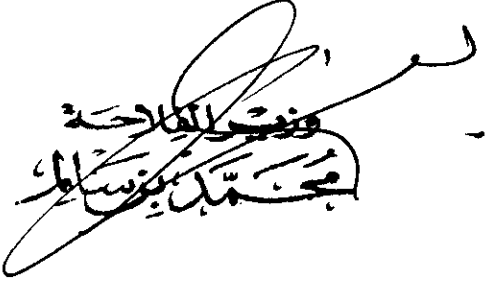 وزير الفلاحة
محمد بن سالم